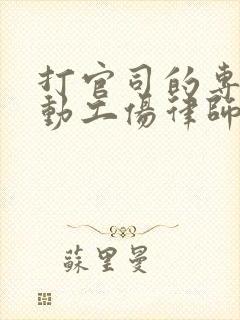 打官司的專
動工傷律師
蘇里曼